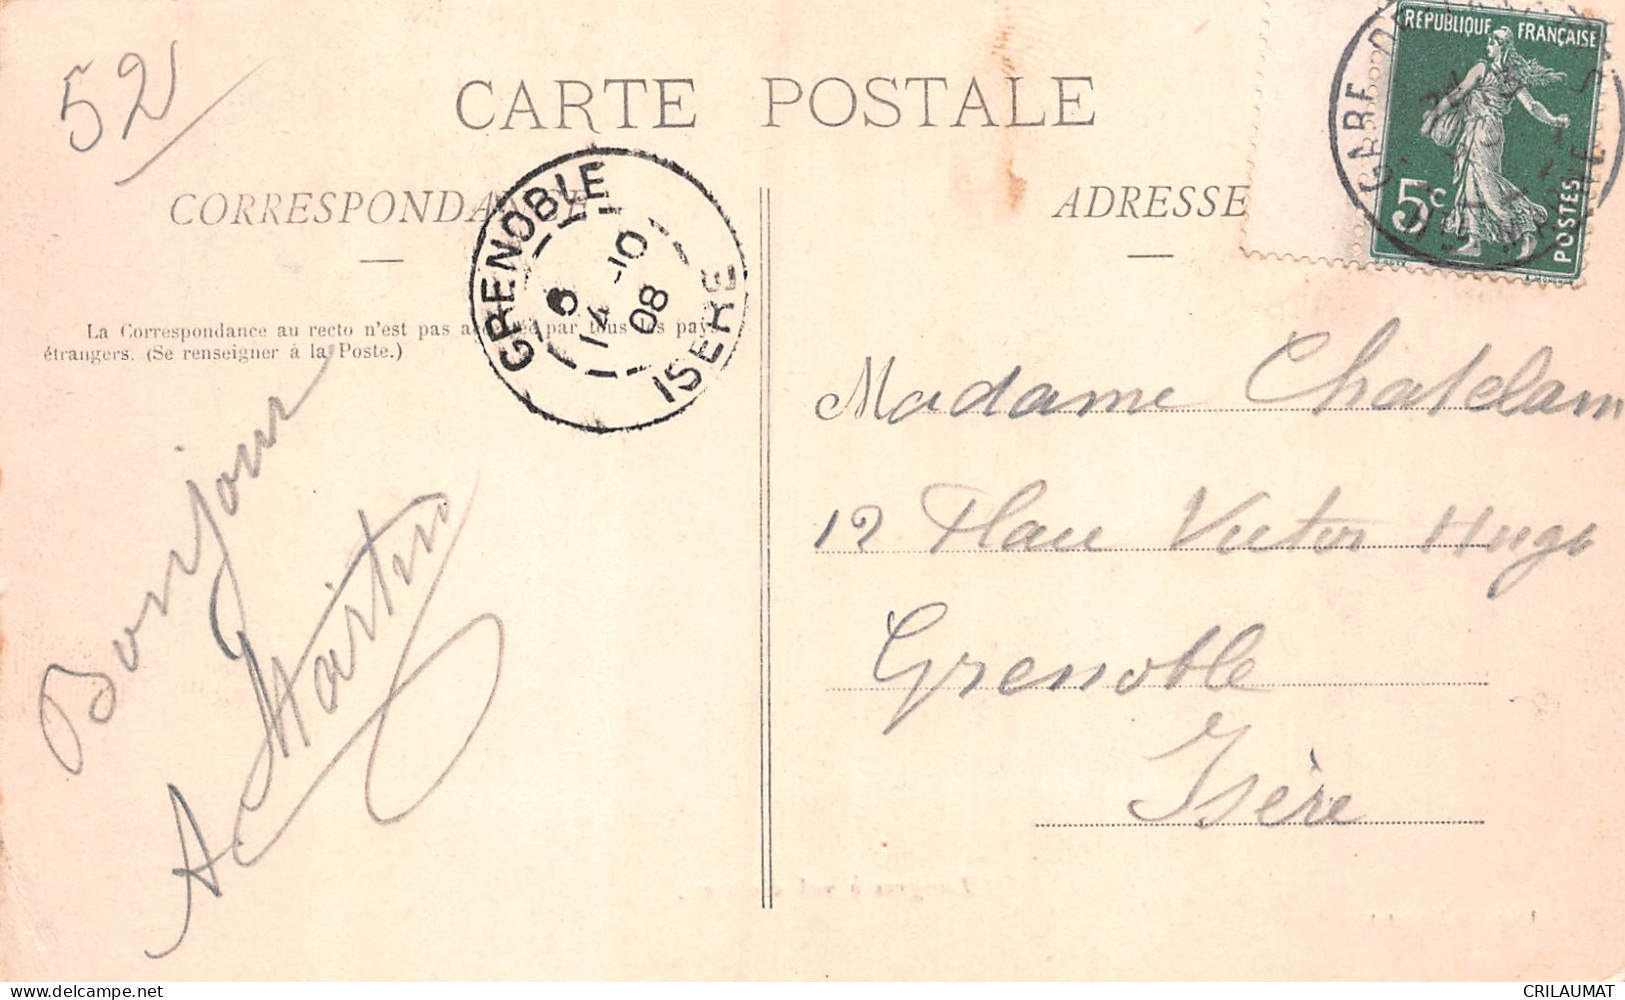 52
CARTE POSTALE
CORRESPONDANCE
ADRESSE
La Correspondance au recto n'est pas acceptée par tous les pays
étrangers. (Se renseigner à la Poste.)
GRENOBLE
6
14 -10
08
ISERE
RÉPUBLIQUE FRANÇAISE
5c
POSTES
GARE DE
Bonjour
A Martin
Madame Chatelam
12 Place Victor Hugo
Grenoble
Isère
delcampe.net
CRILAUMAT